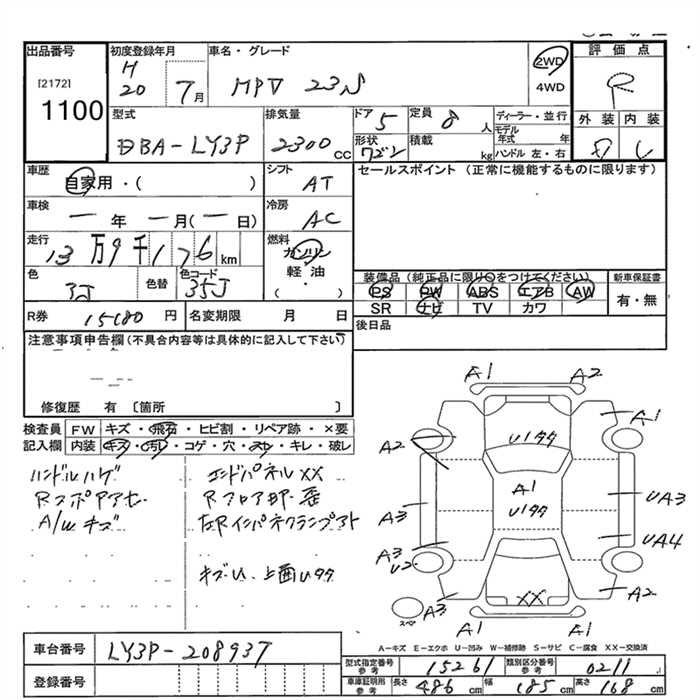 出品番号
[2172]
1100
初度登録年月
H
20 7月
車名・グレード
MPV 23S
2WD
4WD
評価点
R
外装 内装
型式
DBA-LY3P
排気量
2300 cc
ドア 5
形状
ワゴン
定員 8 人
積載 kg
ディーラー・並行
モデル年式 年
ハンドル 左・右
車歴
自家用・( )
シフト
AT
セールスポイント(正常に機能するものに限ります)
車検
一 年 一 月(一 日)
冷房
AC
走行
13万9千176 km
燃料
ガソリン
軽油
( ・ )
色
色替
色コード
35J
装備品(純正品に限り○をつけてください)
PS PW ABS エアB AW
SR ナビ TV カワ
新車保証書
有・無
R券 15180 円
名変期限 月 日
後日品
注意事項申告欄(不具合内容等は具体的に記入して下さい)
修復歴 有 〔箇所 〕
検査員記入欄
FW キズ・飛石・ヒビ割・リペア跡・×要
内装 キズ・汚レ・コゲ・穴・スレ・キレ・破レ
ハンドルハゲ
A/Wキズ
エンドパネルXX
Rフロア部歪
キズU、上面Uタタ
A1 A2
A1
A2
Uタタ
A1
Uタタ
A3
UA3
UA4
A3
U2
A2
XX
A3
スペア
A1 A1
A-キズ E-エクボ U-凹み W-補修跡 S-サビ C-腐食 XX-交換済
車台番号 LY3P-208937
登録番号
型式指定番号 参考 15261
類別区分番号 参考 0211
車庫証明用 参考 長さ 486cm 幅 185cm 高さ 168cm